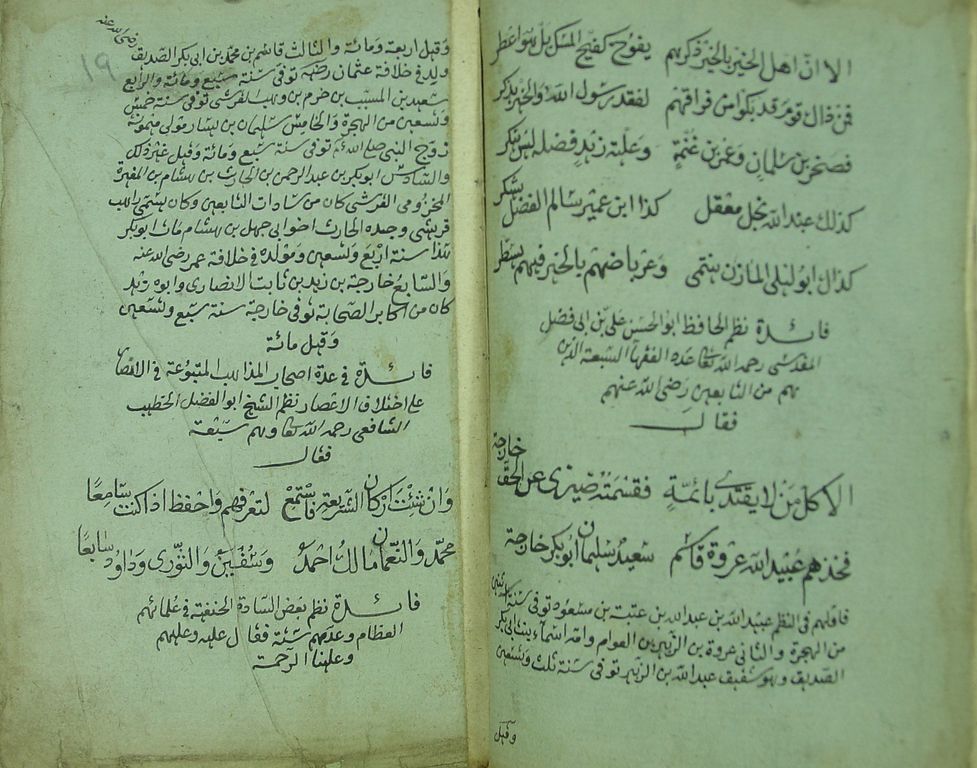 الا ان اهل الخير بالخير ذكرهم يفوح كفيح المسك بل هو اعطر
فمن ذاك قوم قد بكوا من فراقهم لفقد رسول الله والخير يذكر
فصخر بن سلمان وعمرو بن غنمة وعلبة زيد فضله ليس ينكر
كذلك عبد الله نجل معقل كذا ابن عمير سالم الفضل يشكر
كذاك ابو ليلى المازن ينتمى وعرباضهم بالخير فيهم يسطر
فائدة نظم الحافظ ابو الحسن على بن ابى فضل
المقدسى رحمه الله تعا عده الفقها السبعة الذين
هم من التابعين رضى الله عنهم
فقال
الا كل من لا يقتدى بائمّة فقسمته ضيزى عن الحق خارجة
فخذهم عبيد الله عروة قاسم سعيد سليمان ابو بكر خارجة
فاولهم فى النظم عبيد الله بن عبد الله بن عتبة بن مسعود توفى سنة
من الهجرة والثانى عروة بن الزبير بن العوام وامه اسماء بنت ابى بكر
الصديق وهو شقيق عبد الله بن الزبير توفى سنة ثلث وتسعين
وقيل
وقيل اربعة ومائة والثالث قاسم بن محمد بن ابى بكر الصديق رضى الله عنه
ولد فى خلافة عثمان رضه توفى سنة سبع ومائة والرابع
سعيد بن المسيب بن حزم بن وهب القرشى توفى سنة خمس
وتسعين من الهجرة والخامس سليمان بن يسار مولى ميمونة
زوج النبى صلى الله توفى سنة سبع ومائة وقيل غير ذلك
والسادس ابو بكر بن عبد الرحمن بن الحارث بن هشام بن المغيرة
المخزومى القرشى كان من سادات التابعين وكان يسمى راهب
قريش وجده الحارث اخو ابى جهل بن هشام مات ابو بكر
هذا سنة اربع وتسعين ومولده فى خلافة عمر رضى الله عنه
والسابع خارجة بن زيد بن ثابت الانصارى وابوه زيد
كان من اكابر الصحابة توفى خارجة سنة سبع وتسعين
وقيل مائة
فائدة فى عدة اصحاب المذاهب المتبوعة فى الامصار
على اختلاف الاعصار نظم الشيخ ابو الفضل الخطيب
الشافعى رحمه الله تعا وهم سبعة
فقال
وان شئت اركان الشريعة فاستمع لتعرفهم واحفظ اذا كنت سامعا
محمد والنعمان مالك احمد وسفين والثورى وداود سابعا
فائدة نظم بعض السادة الحنفية فى علمائهم
العظام وعدهم ستة فقال عليه وعليهم
وعلينا الرحمة
١٩